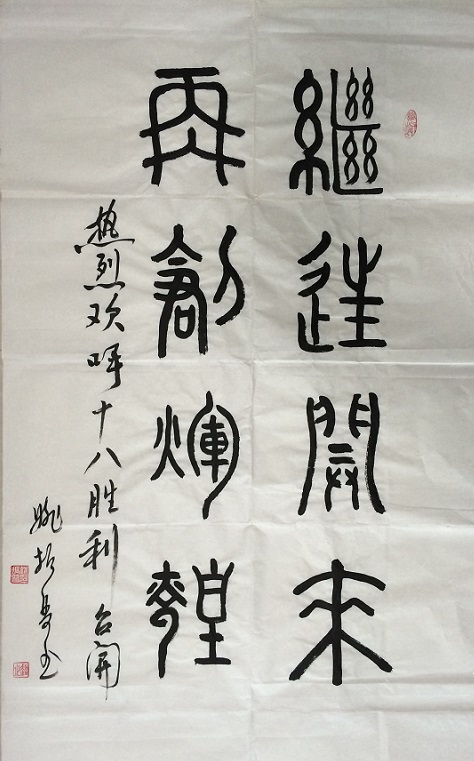 繼往開來
再創輝煌
热烈欢呼十八胜利 召開